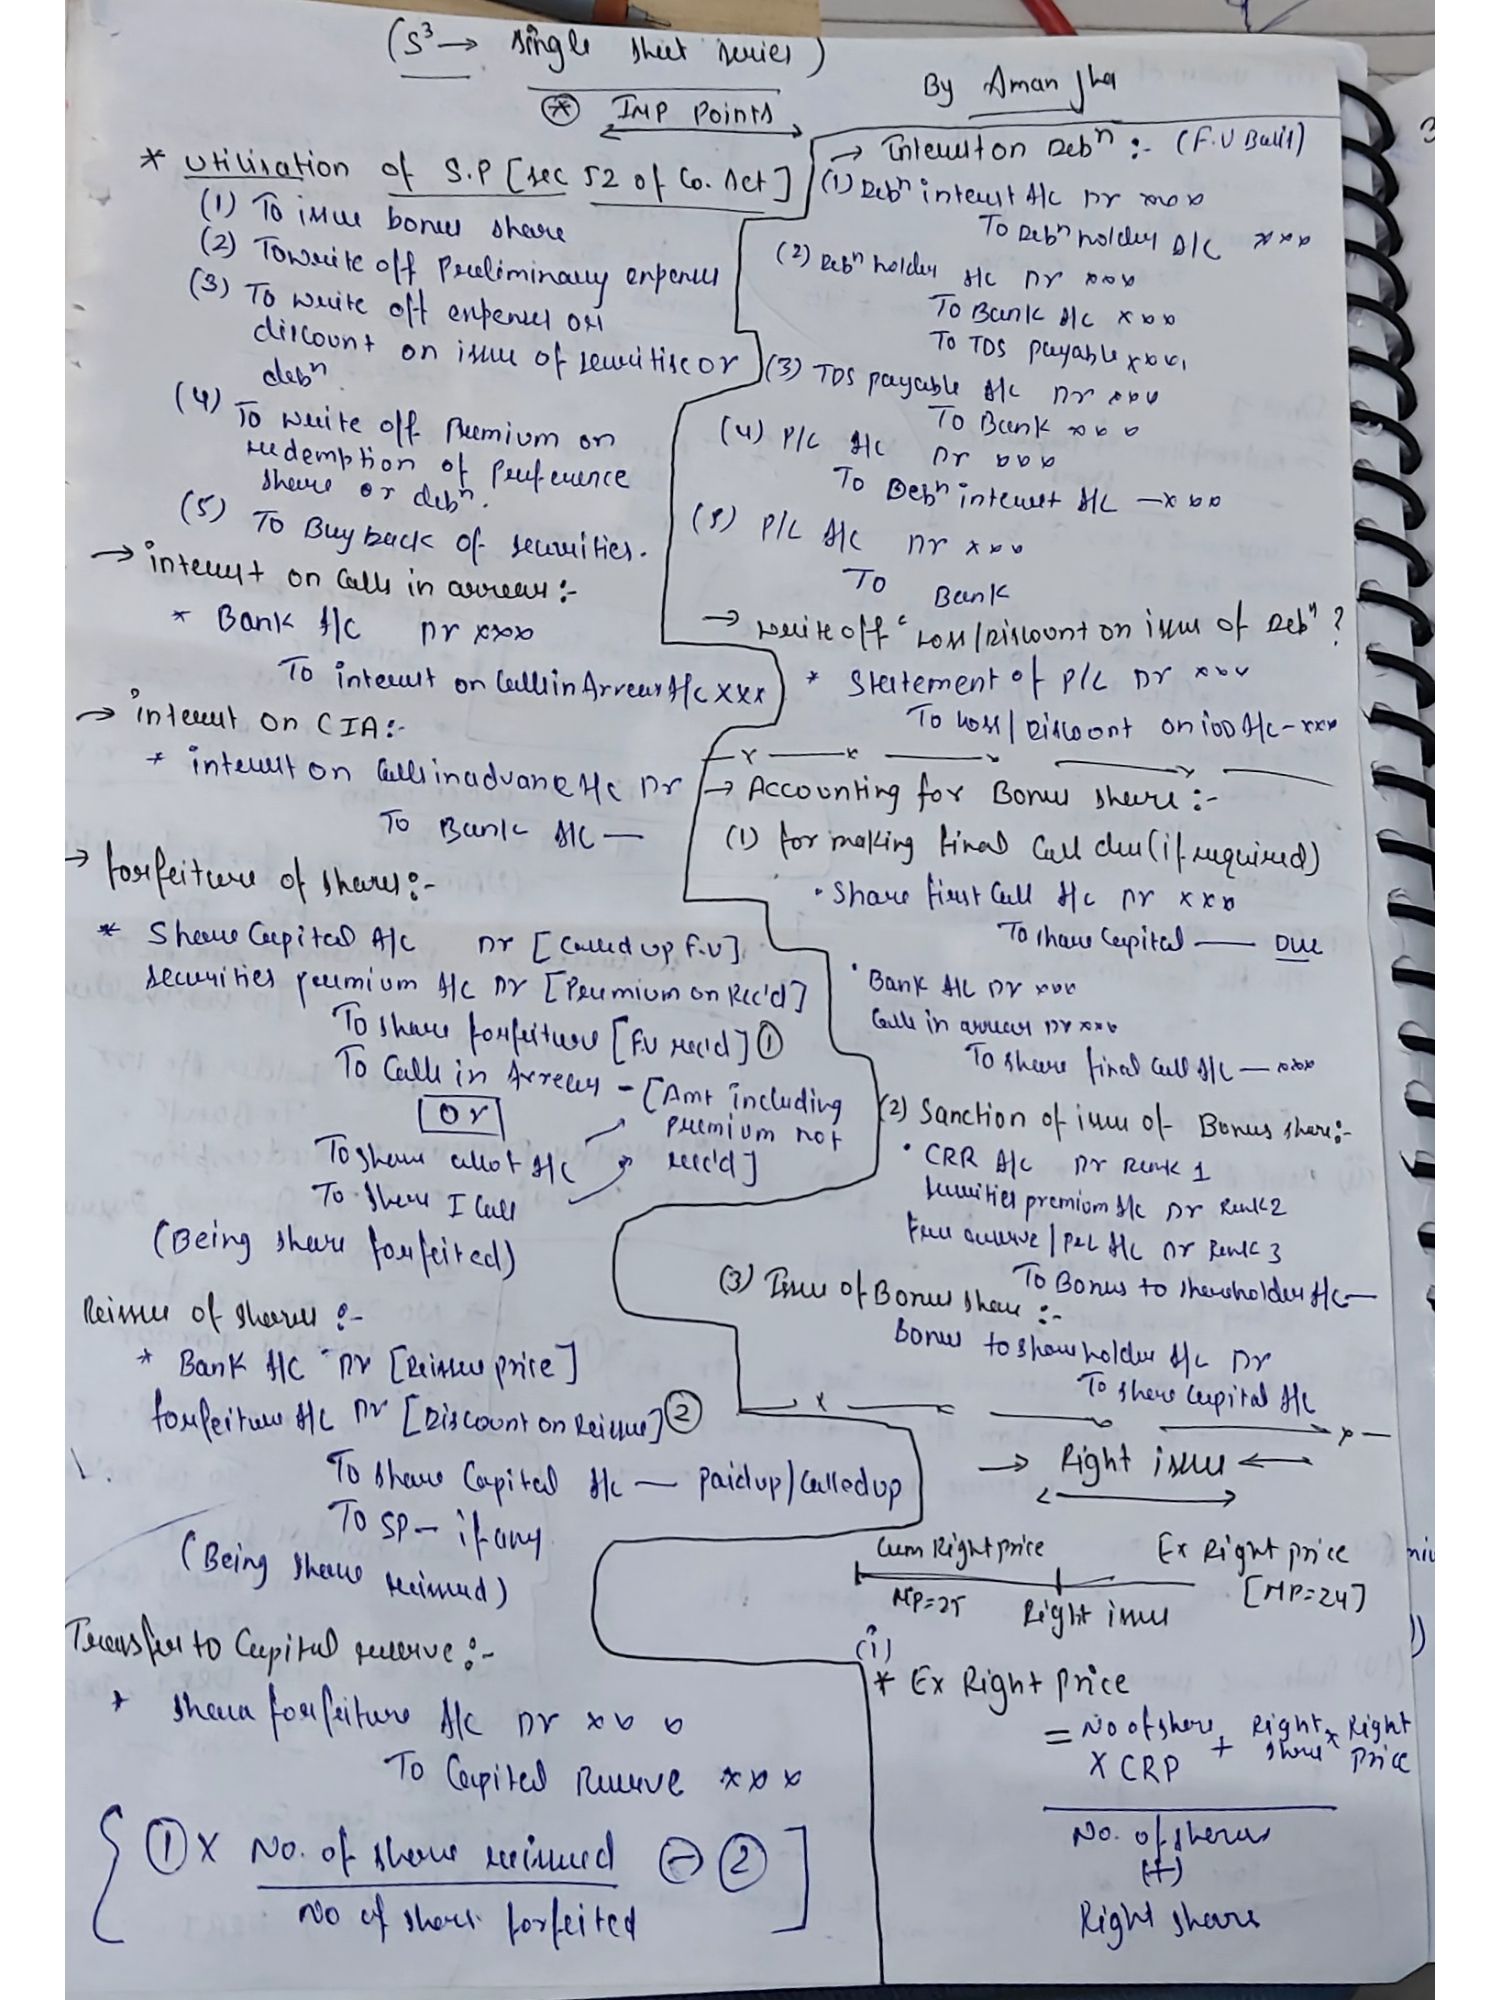 (S³ → single sheet series)
By Aman Jha
* IMP Points
* Utilisation of S.P [sec 52 of Co. Act]
(1) To issue bonus share
(2) To write off Preliminary expenses
(3) To write off expenses or
discount on issue of securities or
debⁿ.
(4) To write off Premium on
redemption of Preference
share or debⁿ.
(5) To Buy back of securities.
→ interest on calls in arrear :-
* Bank A/c Dr xxx
To interest on Calls in Arrear A/c xxx
→ interest on CIA :-
* interest on Calls in advance A/c Dr
To Bank A/c —
→ forfeiture of shares :-
* Share Capital A/c Dr [Called up F.V]
securities premium A/c Dr [Premium on Rec'd]
To share forfeiture [FV rec'd] ①
To Calls in Arrears - [Amt including
premium not
rec'd]
[Or]
To share allot A/c
To share I Call
(Being share forfeited)
Reissue of shares :-
* Bank A/c Dr [Reissue price]
forfeiture A/c Dr [Discount on Reissue] ②
To share Capital A/c — Paidup/Calledup
To SP — if any
(Being share reissued)
Transfer to Capital reserve :-
* share forfeiture A/c Dr xxx
To Capital Reserve xxx
{ ① X No. of share reissued ⊖ ② ]
No of shares forfeited
→ Interest on Debⁿ :- (F.V Basis)
(1) Debⁿ interest A/c Dr xxx
To Debⁿ holder A/c xxx
(2) Debⁿ holder A/c Dr xxx
To Bank A/c xxx
To TDS payable xxx
(3) TDS payable A/c Dr xxx
To Bank xxx
(4) P/L A/c Dr xxx
To Debⁿ interest A/c — xxx
(5) P/L A/c Dr xxx
To Bank
→ write off "Loss/Discount on issue of Debⁿ ?
* Statement of P/L Dr xxx
To Loss/Discount on IOD A/c - xxx
→ Accounting for Bonus share :-
(1) for making final Call due (if required)
• Share first Call A/c Dr xxx
To share Capital — Due
• Bank A/c Dr xxx
Calls in arrear Dr xxx
To share final Call A/c — xxx
(2) Sanction of issue of Bonus share :-
• CRR A/c Dr Rank 1
securities premium A/c Dr Rank 2
Free reserve / P&L A/c Dr Rank 3
To Bonus to shareholder A/c —
(3) Issue of Bonus share :-
Bonus to shareholder A/c Dr
To share Capital A/c
→ Right issue ←
Cum Right price Ex Right price
MP=25 Right issue [MP=24]
(i)
* Ex Right price
= No of share X CRP + Right share x Right Price
No. of shares
(+)
Right shares